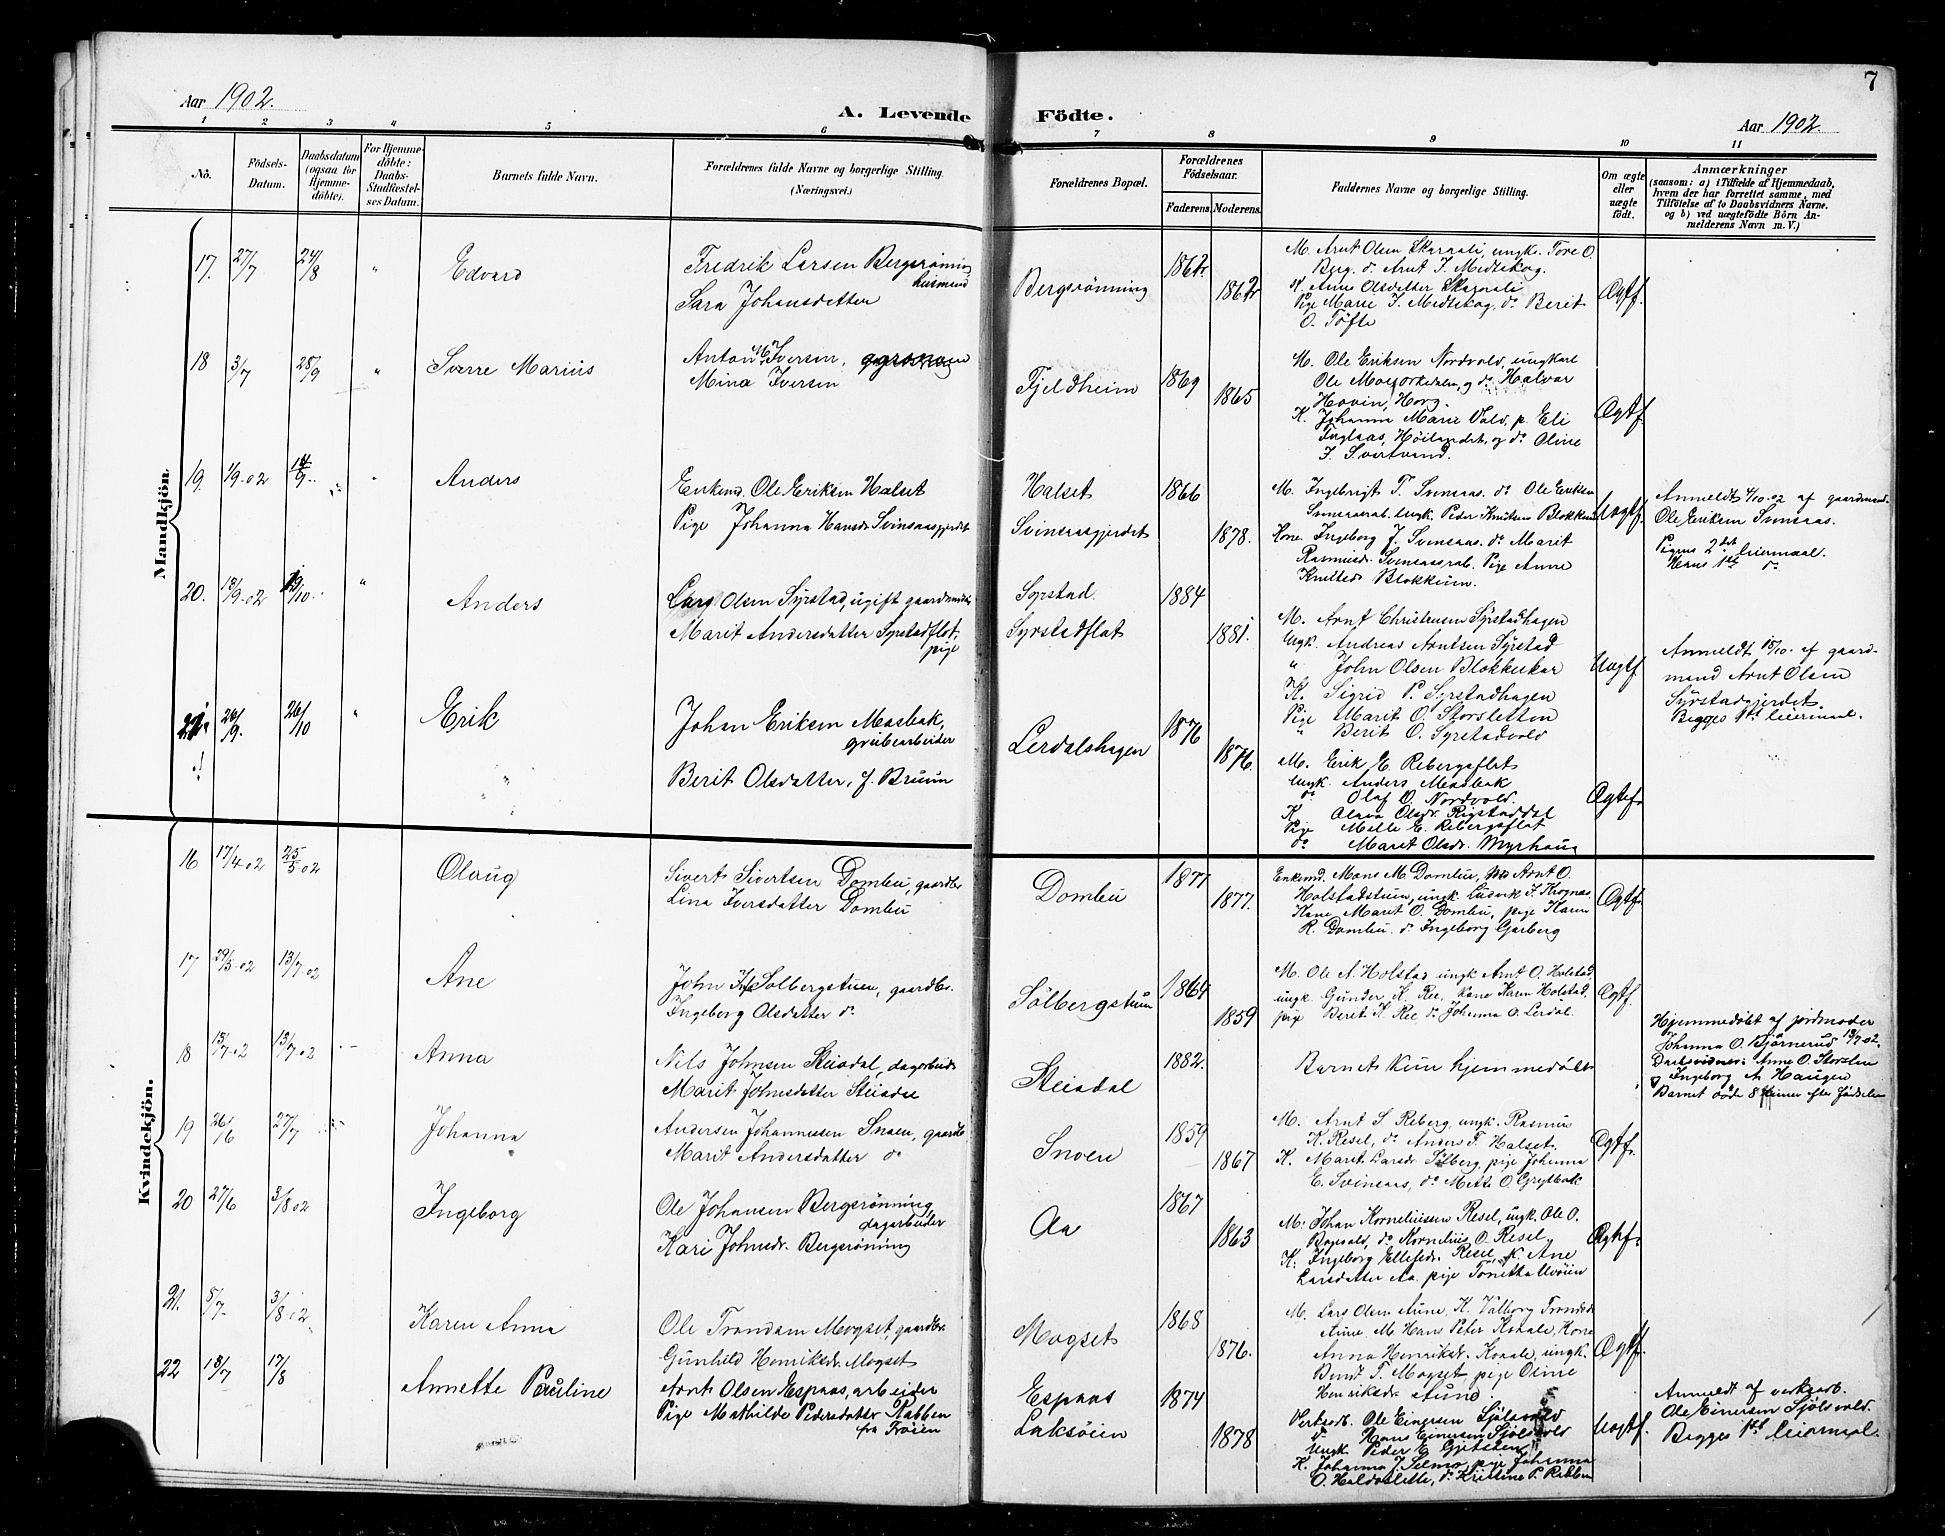 Aar 1902.
A. Levende Födte.
Aar 1902.
7
1 2 3 4 5 6 7 8 9 10 11
No.
Födsels-Datum.
Daabsdatum (ogsaa for Hjemme-döbte).
For Hjemme-döbte: Daabs-Stadfæstel-ses Datum.
Barnets fulde Navn.
Forældrenes fulde Navne og borgerlige Stilling.
(Næringsvei.)
Forældrenes Bopæl.
Forældrenes Födselsaar.
Faderens. Moderens.
Faddernes Navne og borgerlige Stilling.
Om ægte eller uægte födt.
Anmærkninger
(saasom: a) i Tilfælde af Hjemmedaab, hvem der har forrettet samme, med Tilföielse af to Daabsvidners Navne. og b) ved uægtefödte Börn Anmelderens Navn m. V.)
Mandkjön.
17. 27/7 24/8 " Edvard
Fredrik Larsen Bergsrönning
husmand
Sara Johansdatter
Bergsrönning 1862 1862
M. Arnt Olsen Skaraali, ungk. Tore O.
Berg. do Arnt J. Medtskog.
K. Anne Olsdatter Skaraali
Pige Marie J. Medtskog, do Berit
O. Töfte
Ægtf.
18 3/7 28/9 " Sverre Marius
Anton M. Iversen,
Mina Iversen
Fjeldheim 1869 1865
M. Ole Eriksen Nordvold, ungkarl
Ole, og do Halvar
Hovin, Horg.
K. Johanna Marie Vold, p. Eli
Høilandet, og do Oline
J. Svartvand.
Ægtf.
19. 1/9-02 14/9 " Anders
Enkemd. Ole Eriksen Halset
Pige Johanna Hansdr Svinsaasgjerdet
Halset 1866
Svinsaasgjerdet 1878.
M. Ingebrigt T. Svinsaas. do Ole Eriksen
Svinsaasrab. Ungk. Peder Knutsen Blokkum
Kone Ingeborg J. Svensaas. do Marit
Rasmusdr. Svensaasrab. Pige Anne
Knutsdr Blokkum.
Uægtf.
Anmeldt 4/10-02 af gaardmand
Ole Eriksen Svensaas.
Pigens 2det leiermaal.
Hans 1ste do
20. 13/9-02 19/10 " Anders
Lars Olsen Syrstad, ugift gaardmands
Marit Andersdatter Syrstadflot,
pige
Syrstad. 1884
Syrstadflat 1881.
M. Arnt Christensen Syrstadhagen
Ungk. Andreas Arntsen Syrstad
" John Olsen Blokkukar
K. Sigrid P. Syrstadhagen
Pige Marit O. Storsletten
" Berit O. Syrstadvold
Uægtf
Anmeldt 15/10. af gaard-
mand Arnt Olsen
Syrstadgjerdet.
Begges 1ste leiermaal.
21. 26/9. 26/10 " Erik
Johan Eriksen Masbak,
grubearbeider
Berit Olsdatter, f. Bruun
Lerdalshagen 1876 1876.
M. Erik E. Rebergsflat
Ungk. Anders Masbak
do Olaf O. Nordvold.
K Olava Olsdr. Rigstaddal
Pige Mille E. Rebergsflat
do Maret Olsdr. Myrhaug
Ægtef.
Kvindekjön.
16 17/4 02 25/5 02 Olaug
Sivert Sivertsen Dombu, gaardbr
Lina Iversdatter Dombu
Dombu 1877 1877.
Enkemd. Mons M. Dombu, Arnt O.
Holstadstuen, ungk. Ludvik J. Krognas.
Kone Maret O. Dombu, pige Karen
R. Dombu. do Ingeborg Garberg
Ægtf.
17 29/5-02 13/7-02 Ane
John Solbergstuen, gaardbr.
Ingeborg Olsdatter do
Sölbergstuen 1864 1859
M. Ole A. Holstad ungk Arnt O. Holstad,
ungk. Gunder K. Ree, Kone Karen Holstad,
pige Berit K Ree do Johanna O. Lerdal.
Ægtf.
18 13/7-02 13/7-02 Anna
Nils Johnsen Skeiadal, dagarbeider
Marit Johnsdatter
Skeiadal 1882.
Barnet kun hjemmedöbt
Hjemmedöbt af jordmoder
Johanna O. Björnerud 13/7-02.
Daabsvidner: Anne O. Storslen
Ingeborg A. Haugen
Barnet döde 8 timer efter födselen
19 26/6 27/7 Johanna
Andersen Johannesen Snoen, gaardbr
Marit Andersdatter do
Snoen 1859 1867
M. Arnt S. Reberg, ungk. Rasmus
K. Resel, do Anders F. Halset.
K. Marit Larsdr Solberg, pige Johanna
E. Svinsaas, do Mette O. Grytbak
Ægtf.
20 27/6 3/8 02 Ingeborg
Ole Johansen Bergsrönning
dagarbeider
Kari Johnsdr. Bergsröning
Aa 1867 1863
M. Johan Kornelinssen Resel, ungk. Ole O.
do Kornelius O. Resel,
K. Ingeborg Ellefsdr. Resel, K. Ane
Larsdatter Aa. pige
Ægtf.
21. 5/7- 3/8-02 Karen Anna
Ole Trondsen Mogset, gaardbr.
Gunhild Henriksdr. Mogset
Mogset 1868 1876.
M. Lars Olsen Aune, K. Valborg Trondsdr
Aune M. Hans Peter Konale, Kone
Anna Henriksdr. Konale, ungk.
Bendt T. Mogset pige Oline
Henriksdr. Aune
Ægtf.
22 18/7 17/8 Annette Pauline
Arnt Olsen Espaas, arbeider
Pige Mathilde Pedersdatter Rabben
fra Fröien
Espaas 1874
Laksöien 1878
Verksarb. Ole Einersen Sjölsvold
do Hans Einersen Sjölsvold
Ungk Peder E. Gjetsteen
K. Johanna J. Selmo, pige Johanna
O. Haldoslette, do Kristine P. Rabben
Uægtf.
Anmeldt af verksarb.
Ole Einersen Sjölsvold.
Begges 1ste leiermaal.